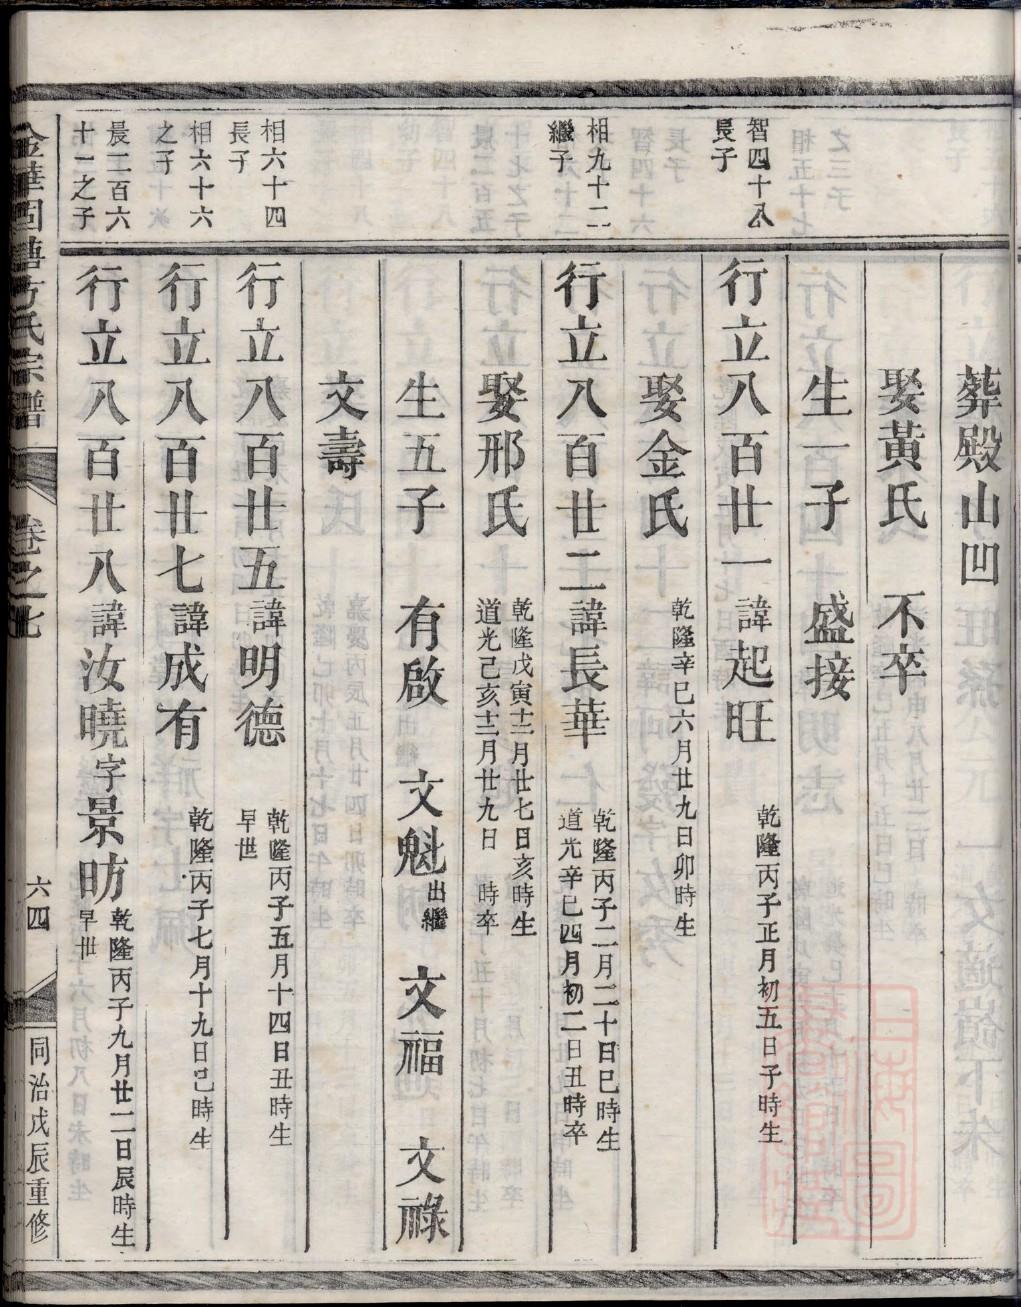 葬殿山凹
娶黃氏 不卒
生一子 盛接
智四十八
長子
行立八百廿一諱起旺 乾隆丙子正月初五日子時生
娶金氏 乾隆辛巳六月廿九日卯時生
相九十二
繼子
行立八百廿二諱長華 乾隆丙子二月二十日巳時生
道光辛巳四月初二日丑時卒
娶邢氏 乾隆戊寅十二月廿七日亥時生
道光己亥十二月廿九日 時卒
生五子 有啟 文魁出繼 文福 文祿
文壽
相六十四
長子
行立八百廿五諱明德 乾隆丙子五月十四日丑時生
早世
相六十六
之子
行立八百廿七諱成有 乾隆丙子七月十九日巳時生
晨二百六
十二之子
行立八百廿八諱汝曉字景昉 乾隆丙子九月廿二日辰時生
早世
金華固塘方氏宗譜 卷之七 六四 同治戊辰重修